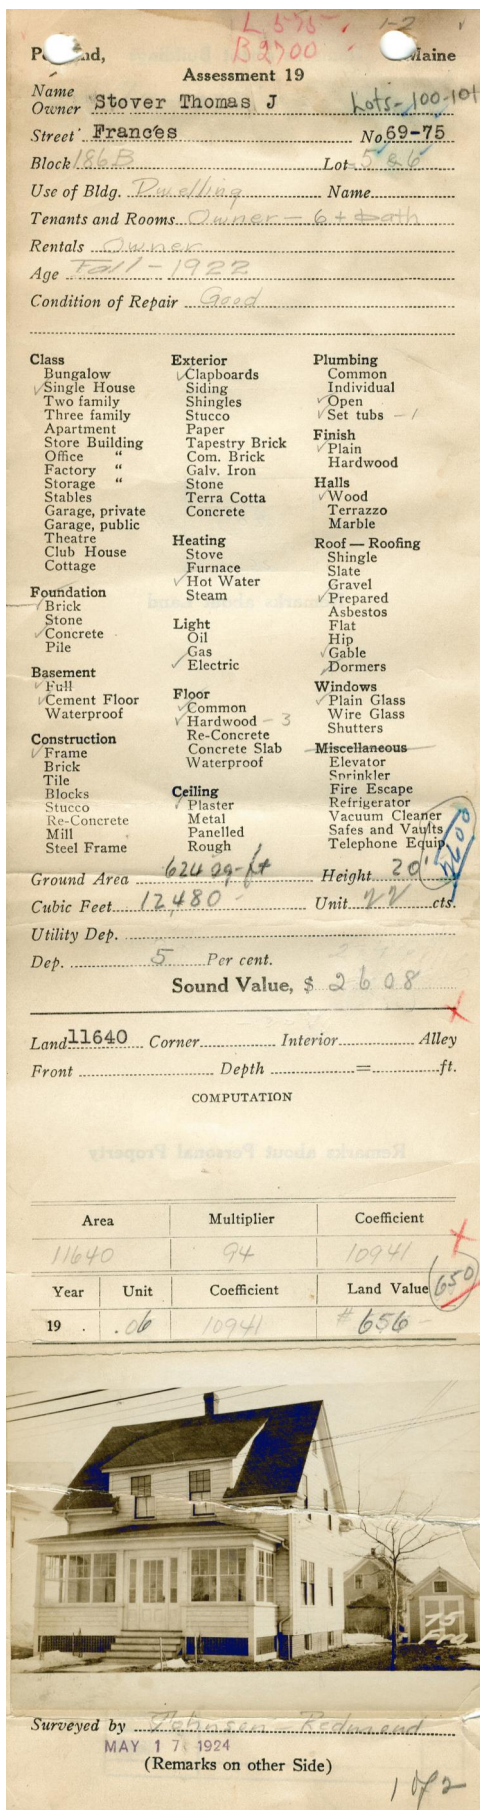 L 575 1-2
B 2700
Portland, Maine
Assessment 19
Name
Owner Stover Thomas J Lots-100-101
Street Frances No. 69-75
Block 186B Lot 5 & 6
Use of Bldg. Dwelling Name
Tenants and Rooms Owner - 6 + Bath
Rentals Owner
Age Fall - 1922
Condition of Repair Good
Class
Bungalow
✓Single House
Two family
Three family
Apartment
Store Building
Office "
Factory "
Storage "
Stables
Garage, private
Garage, public
Theatre
Club House
Cottage
Foundation
Brick
Stone
✓Concrete
Pile
Basement
✓Full
✓Cement Floor
Waterproof
Construction
✓Frame
Brick
Tile
Blocks
Stucco
Re-Concrete
Mill
Steel Frame
Exterior
✓Clapboards
Siding
Shingles
Stucco
Paper
Tapestry Brick
Com. Brick
Galv. Iron
Stone
Terra Cotta
Concrete
Heating
Stove
Furnace
✓Hot Water
Steam
Light
Oil
Gas
✓Electric
Floor
✓Common
✓Hardwood - 3
Re-Concrete
Concrete Slab
Waterproof
Ceiling
✓Plaster
Metal
Panelled
Rough
Plumbing
Common
Individual
✓Open
✓Set tubs - 1
Finish
✓Plain
Hardwood
Halls
✓Wood
Terrazzo
Marble
Roof — Roofing
Shingle
Slate
Gravel
✓Prepared
Asbestos
Flat
Hip
✓Gable
✓Dormers
Windows
✓Plain Glass
Wire Glass
Shutters
Miscellaneous
Elevator
Sprinkler
Fire Escape
Refrigerator
Vacuum Cleaner
Safes and Vaults
Telephone Equip.
2600
Ground Area 624 sq-ft Height 20'
Cubic Feet 12,480 - Unit 22 cts.
Utility Dep.
Dep. 5 Per cent.
Sound Value, $ 2608
Land 11640 Corner Interior Alley
Front Depth = ft.
COMPUTATION
Remarks about Personal Property
Area Multiplier Coefficient
11640 94 10941
Year Unit Coefficient Land Value 650
19 . .06 10941 # 656 -
75
Surveyed by Johnson - Redmond
MAY 17 1924
(Remarks on other Side)
1 of 2